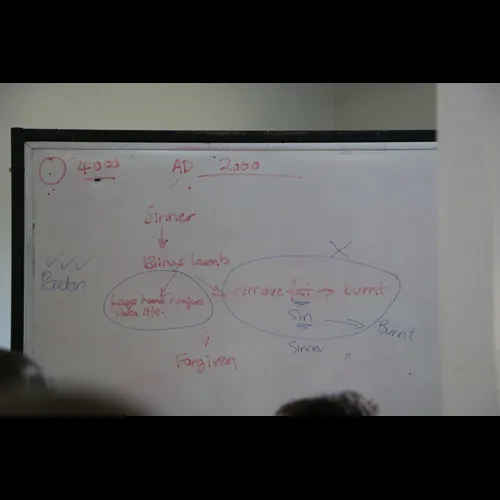 4000 AD 2000
Sinner
Brings Lamb
✓✓✓
Pardon
X
remove fat → burnt
Sin → Burnt
Sinner "
Forgiven